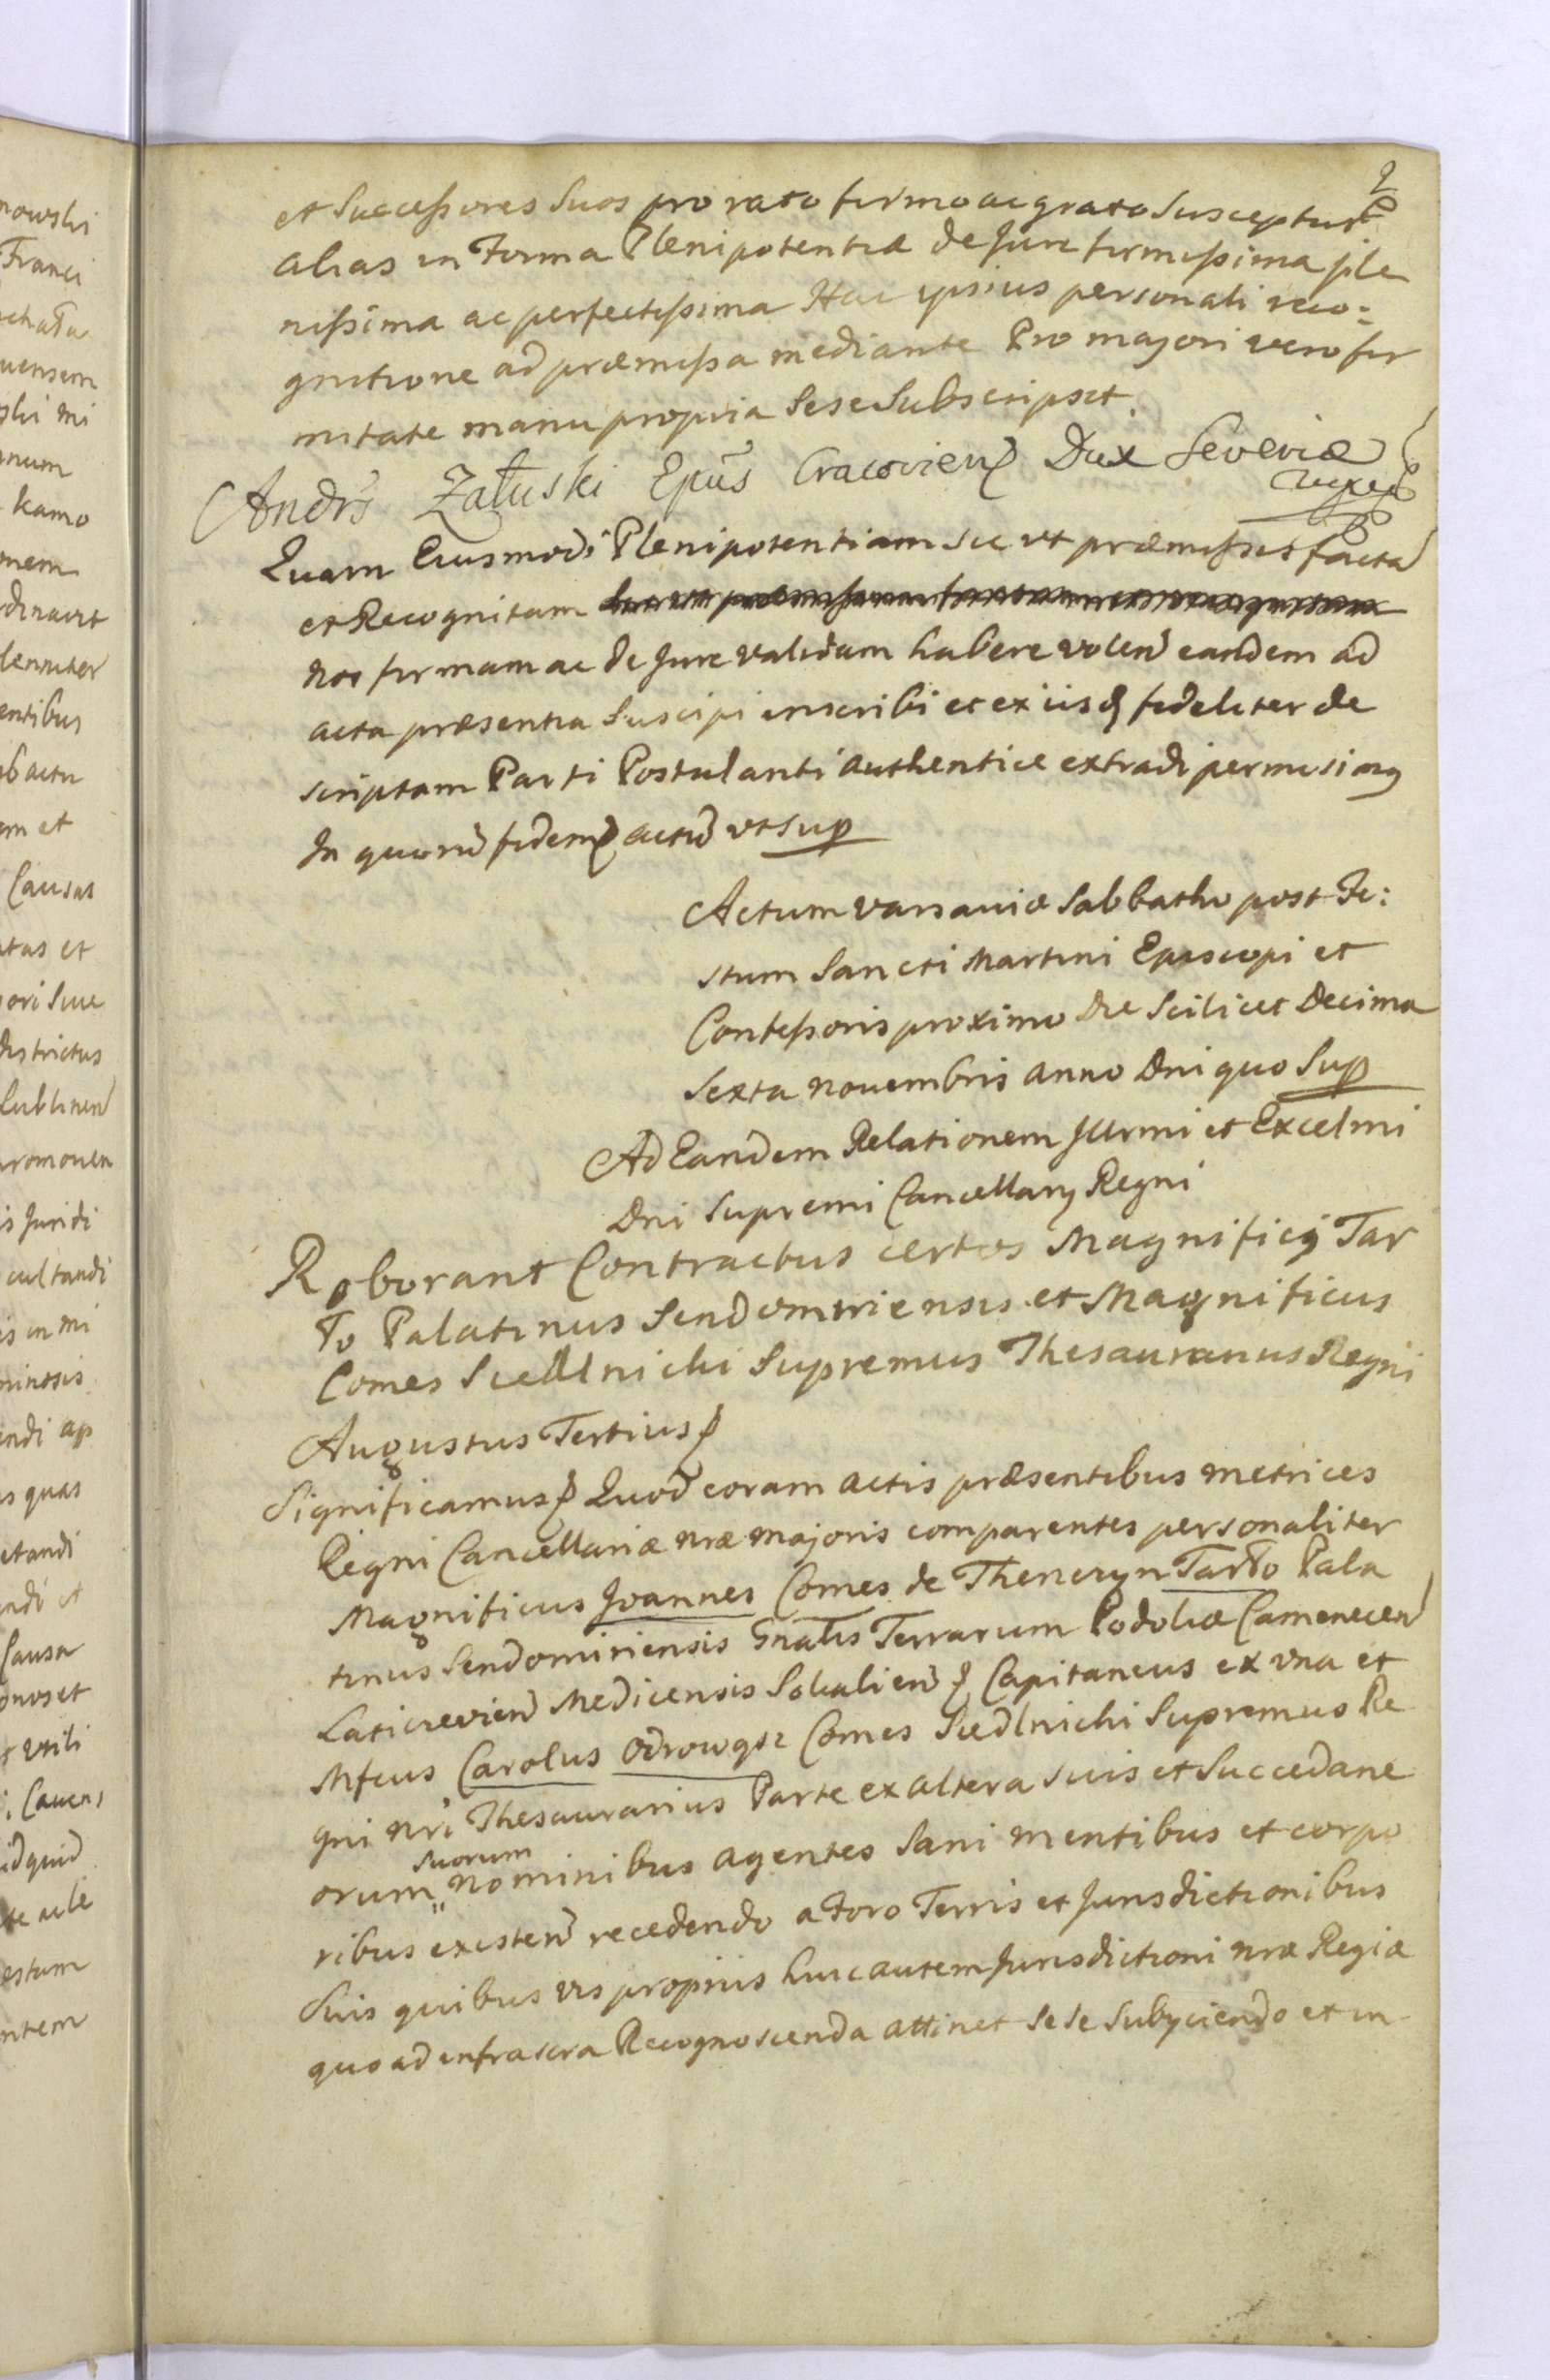 2
et Successores Suos pro rato firmo ac grato Susceptur
alias in Forma Plenipotentiæ de Jure firmissima ple
nissima ac perfectissima Hac ipsius personali reco:
gnitione ad præmissa mediante Pro majori vero fir
mitate manu propria Sese Subscripsit.
Andrs Załuski Epus Cracovien Dux Severiæ
Quam Eiusmodi Plenipotentiam sic ut præmissis factã
et Recognitam
nos firmam ac de Jure validam habere volen eandem ad
acta præsentia Suscipi inscribi et ex iisd fideliter de
scriptam Parti Postulanti authentice extradi permisimq
In quorũ fidem actũ ut sup
Actum varsaviæ Sabbatho post Fe:
stum Sancti Martini Episcopi et
Confessoris proximo Die Scilicet Decima
Sexta novembris anno Dni quo Sup
Ad Eandem Relationem Jllrmi et Excelmi
Dni Supremi Cancellarij Regni
Roborant Contractus certos Magnificq Tar
ło Palatinus Sendomiriensis et Magnificus
Comes Siedlnicki Supremus Thesaurarius Regni
Augustus Tertius
Significamus Quod coram actis præsentibus metrices
Regni Cancellariæ nræ majoris comparentes personaliter
Magnificus Joannes Comes de Thenczyn Tarło Pala
tinus Sendomiriensis Gnalis Terrarum Podoliæ Camenecen
Laticzevien Medicensis Sokalien Capitaneus ex una et
Mfcus Carolus Odrowąsz Comes Siedlnicki Supremus Re
gni nri Thesaurarius Parte ex altera suis et Succedane
suorum
orum " nominibus agentes Sani mentibus et corpo
ribus existen recedendo a Foro Terris et Jurisdictionibus
Suis quibus vis propriis huic autem Jurisdictioni nræ Regiæ
quo ad infrascra Recognoscenda attinet Sese Subyciendo et in